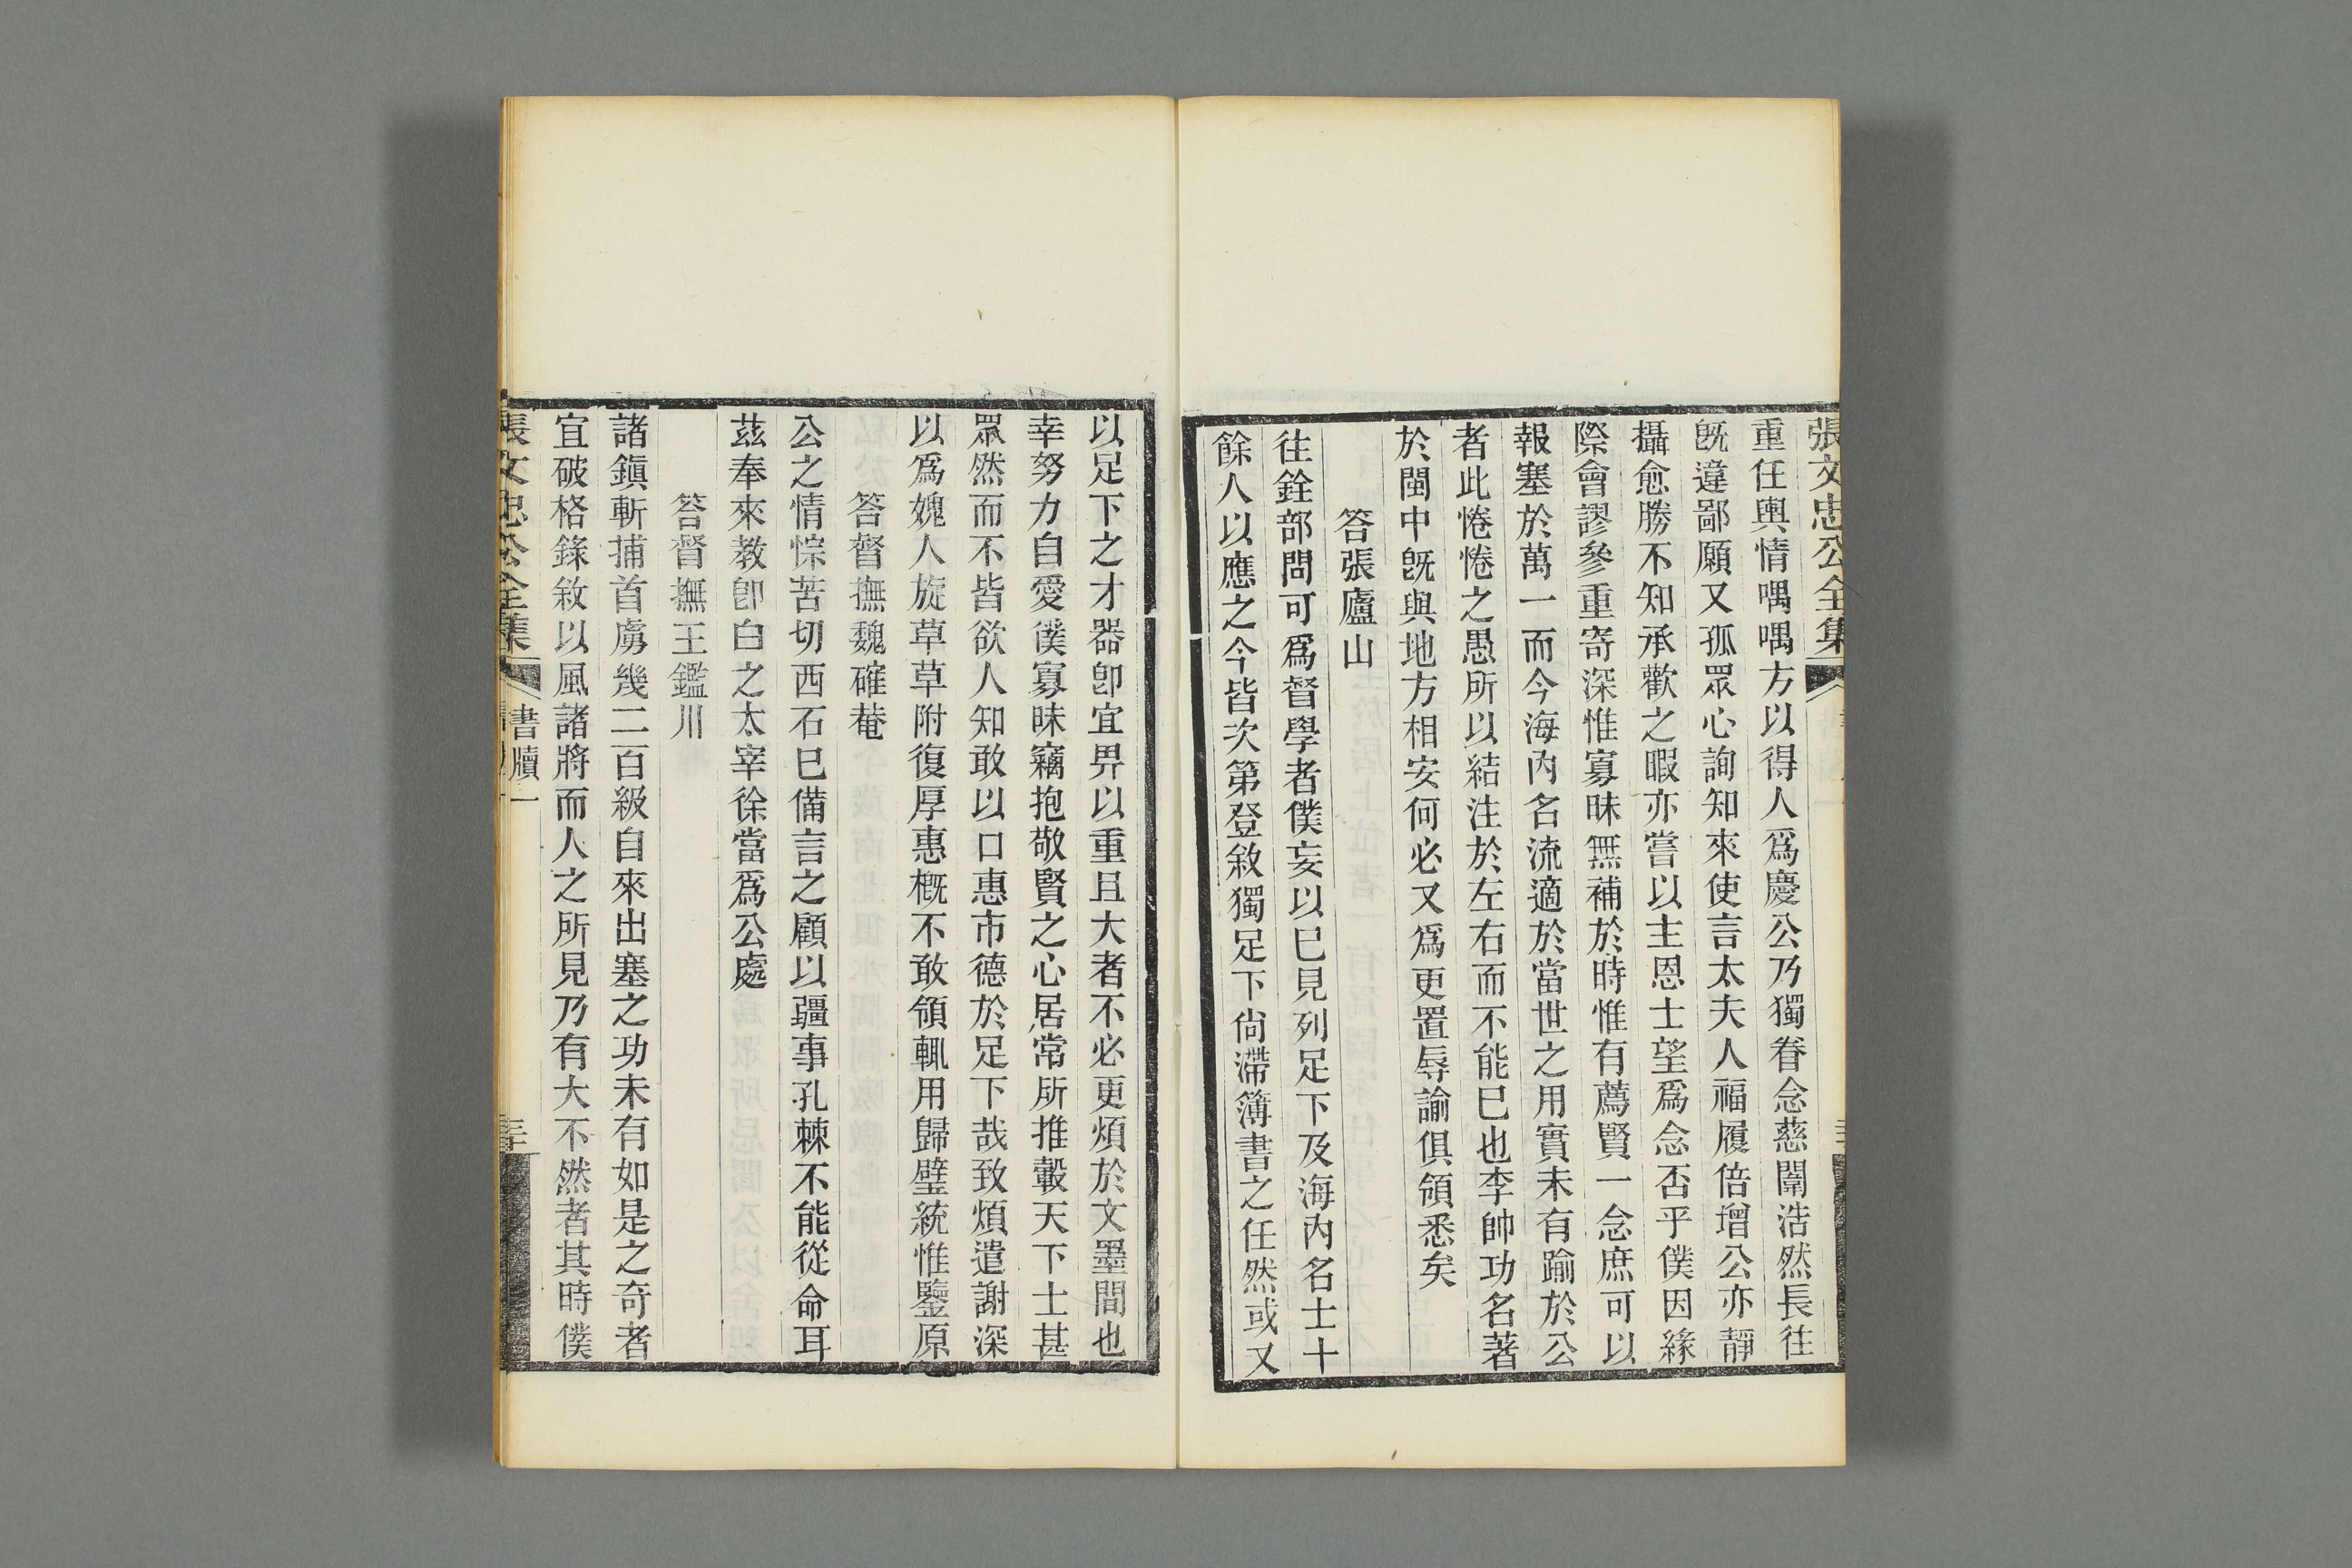 張文忠公全集
重任輿情喁喁方以得人爲慶公乃獨眷念慈闈浩然長往
旣違鄙願又孤眾心詢知來使言太夫人福履倍增公亦靜
攝愈勝不知承歡之暇亦嘗以主恩士望爲念否乎僕因緣
際會謬參重寄深惟寡昧無補於時惟有薦賢一念庶可以
報塞於萬一而今海內名流適於當世之用實未有踰於公
者此惓惓之愚所以結注於左右而不能已也李帥功名著
於閩中旣與地方相安何必又爲更置辱諭俱領悉矣
答張廬山
往銓部問可爲督學者僕妄以已見列足下及海內名士十
餘人以應之今皆次第登敘獨足下尙滯簿書之任然或又
以足下之才器卽宜畀以重且大者不必更煩於文墨間也
幸努力自愛僕寡昧竊抱敬賢之心居常所推轂天下士甚
眾然而不皆欲人知敢以口惠市德於足下哉致煩遣謝深
以爲媿人旋草草附復厚惠槪不敢領輒用歸璧統惟鑒原
答督撫魏確菴
公之情悰苦切西石已備言之顧以疆事孔棘不能從命耳
茲奉來教卽白之太宰徐當爲公處
答督撫王鑑川
諸鎭斬捕首虜幾二百級自來出塞之功未有如是之奇者
宜破格錄敘以風諸將而人之所見乃有大不然者其時僕
張文忠公全集
書牘一